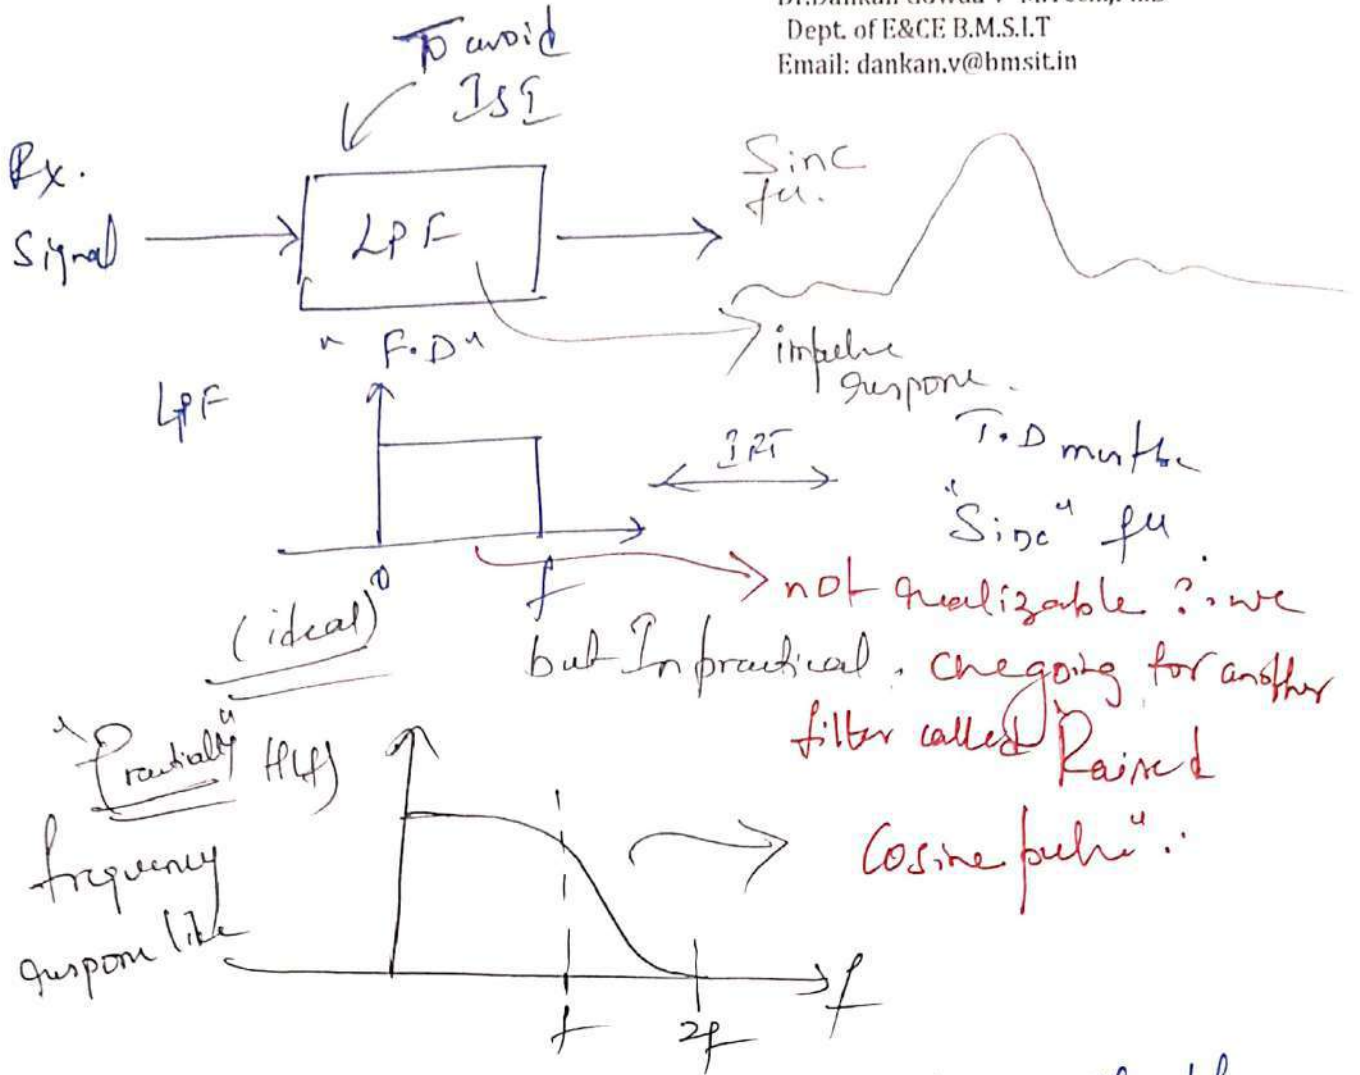 Dept. of E&CE B.M.S.I.T
Email: dankan.v@bmsit.in
To avoid
ISI
Rx.
Signal
LPF
Sinc
fu.
" F.D"
impulse
response.
LPF
IFT
T.D must be
"Sinc" fu
0
f
(ideal)
not realizable ∵ we
but In practical. are going for another
filter called "Raised
Cosine pulse".
"Practially" H(f)
frequency
respone like
f
2f
f